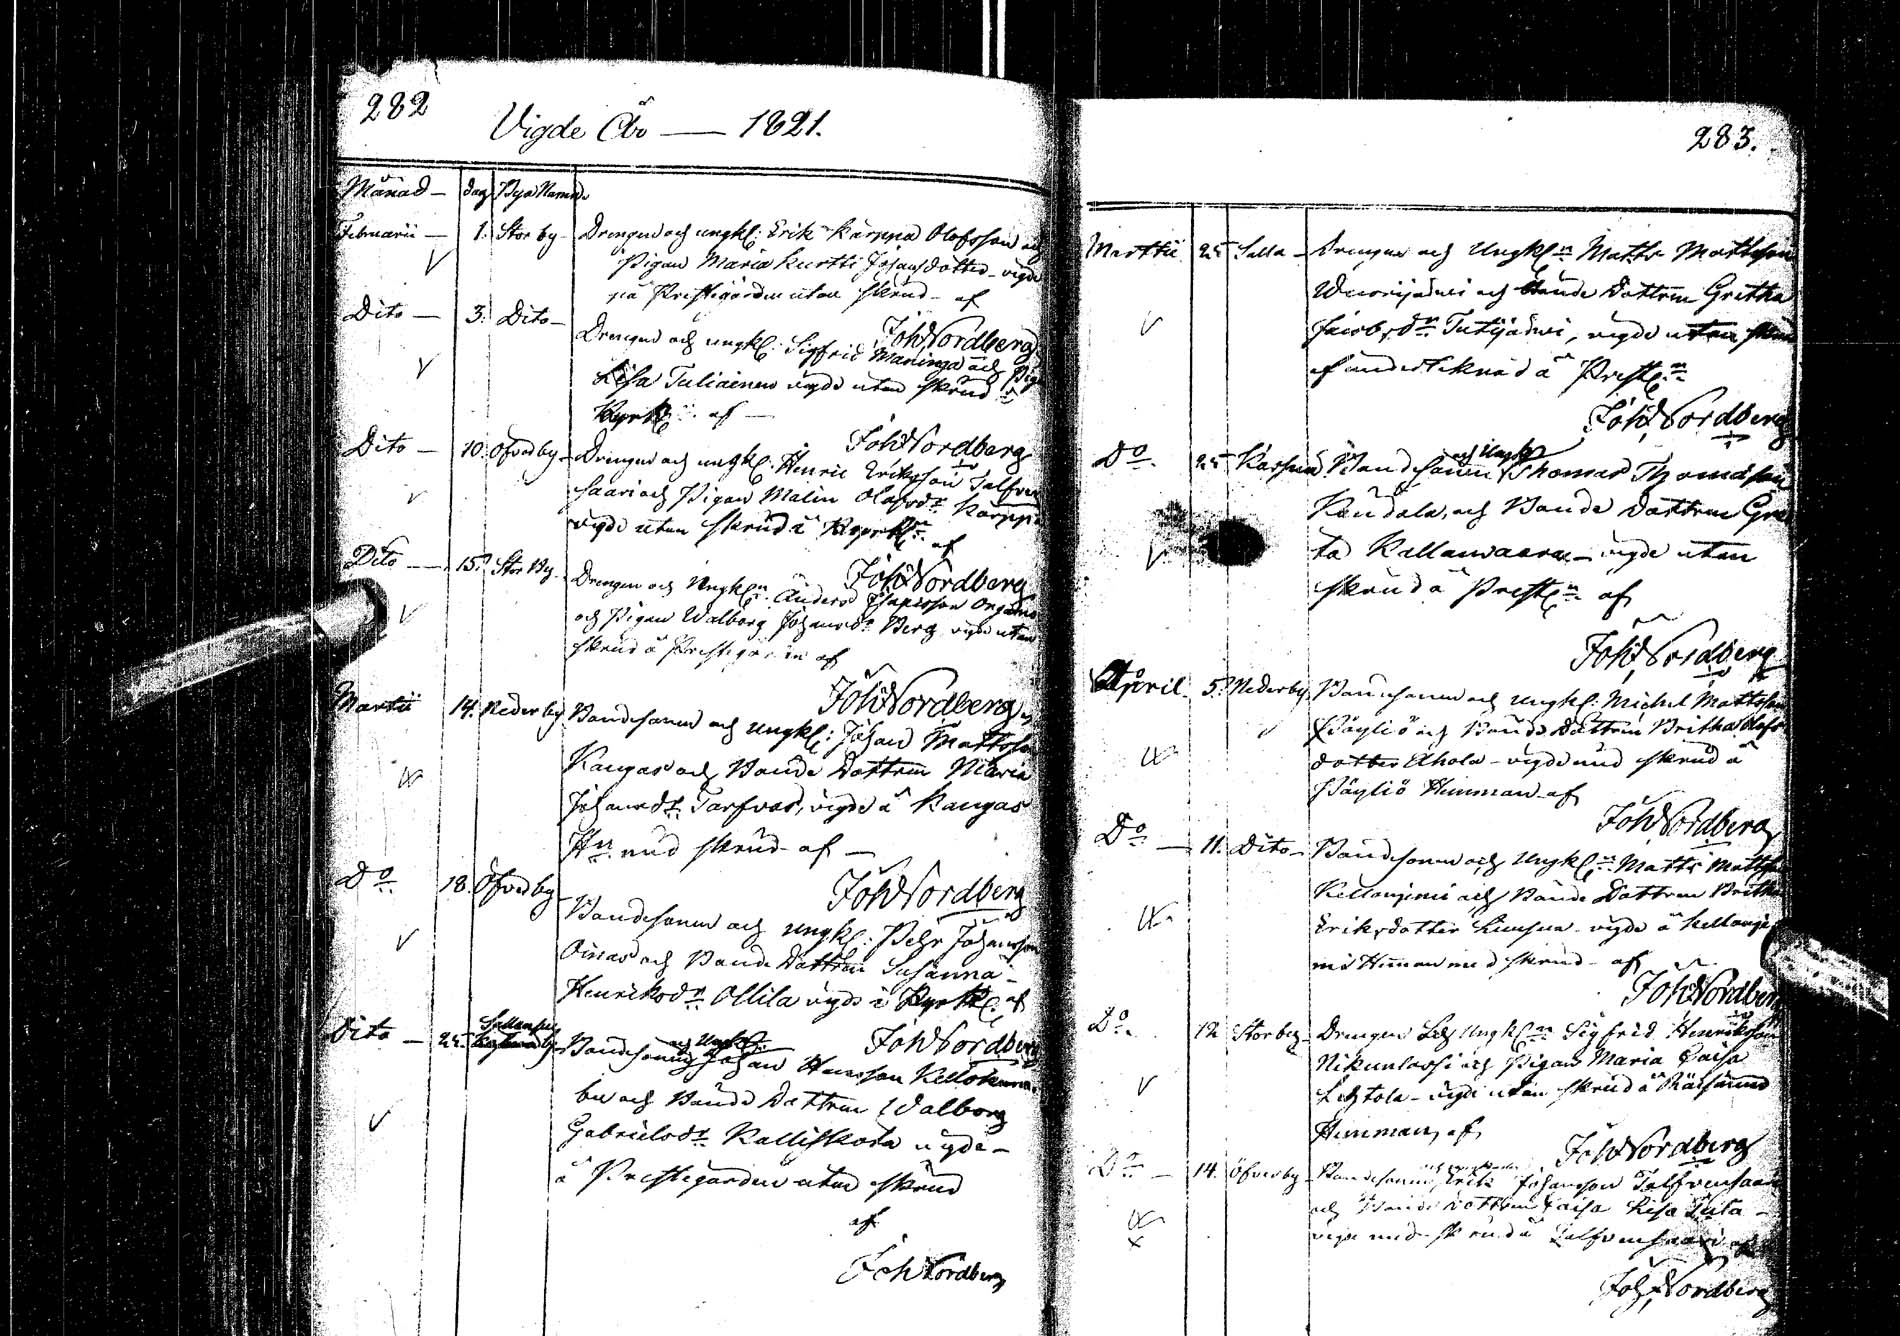 282
Vigde År — 1821.
Månad — dag Bya Namn
Februarii — 1. Storby — Drengen och ungkl: Erik Karppa Olofsson och
Pigan Maria Kurtti Johansdotter — vigde
på Prestegården utan skrud — af
Joh Nordberg
Dito — 3. Dito — Drengen och ungkl: Sigfrid Maninga och Pig
Lisa Tuliainen vigde utan skrud i
Kyrk: af —
Joh Nordberg
Dito — 10. Öfverby — Drengen och ungkl: Henric Eriksson Talfven
saari och Pigan Malin Olofsdr Karppa
vigde utan skrud i Kyrk: af
Joh Nordberg
Dito — 15. Stor By — Drengen och Ungkl: Anders
och Pigan Walborg Johansdr Berg vigde utan
skrud å Prestegården af
Joh Nordberg
Martii 14. Nederby Bondesonen och Ungkl: Johan Mattsson
Kangas och Bonde Dottren Maria
Johansdr Tarfvas, vigde å Kangas
Hn med skrud — af —
Joh Nordberg
Do 18. Öfverby Bondesonen och Ungkl: Pehr Johansson
Oinas och Bonde Dottren Susanna
Henriksdr Ollila vigde i Kyrk: af
Joh Nordberg
Dito — 25. Bondesonen och Ungkl: Johan Hansson Kellokum
bu och Bonde Dottren Walborg
Gabrielsdr Kalliskota vigde —
å Prestegården utan skrud
af
Joh Nordberg
283.
Marttii 25 Salla — Drengen och Ungkl: Matts Mattsson
Wuorijärvi och Bonde Dottren Gretha
Jacobsdr Tutijärvi, vigde utan skrud
af underteknad å Prestg:
Joh Nordberg
Do. 25 Bondesonen och Ungkl Thomas Thomasson
Kandala, och Bonde Dottren Gre
ta Kallanwaara — vigde utan
skrud å Prestg: af
Joh Nordberg
April 5. Nederby Bondesonen och Ungkl: Michel Mattsson
Päyliö och Bonde Dottren Britha Olofs
dotter Ahola — vigde med skrud å
Päyliö Hemman — af
Joh Nordberg
Do — 11. Dito — Bondesonen och Ungkl: Matts Mattsson
Kellonjemi och Bonde Dottren Britha
Eriksdotter vigde å Kellonje
mi Hemman med skrud — af
Joh Nordberg
Do. 12 Storby — Drengen och Ungkl: Sigfrid Henriksson
Nikunlassi och Pigan Maria Caisa
Lehtola — vigde utan skrud å Räisänen
Hemman, af
Joh Nordberg
Do — 14. Öfverby Bondesonen Erik Johansson Talfvensaari
och Bonde Dottren Caisa Lisa
vigde med skrud å Talfvensaari af
Joh Nordberg